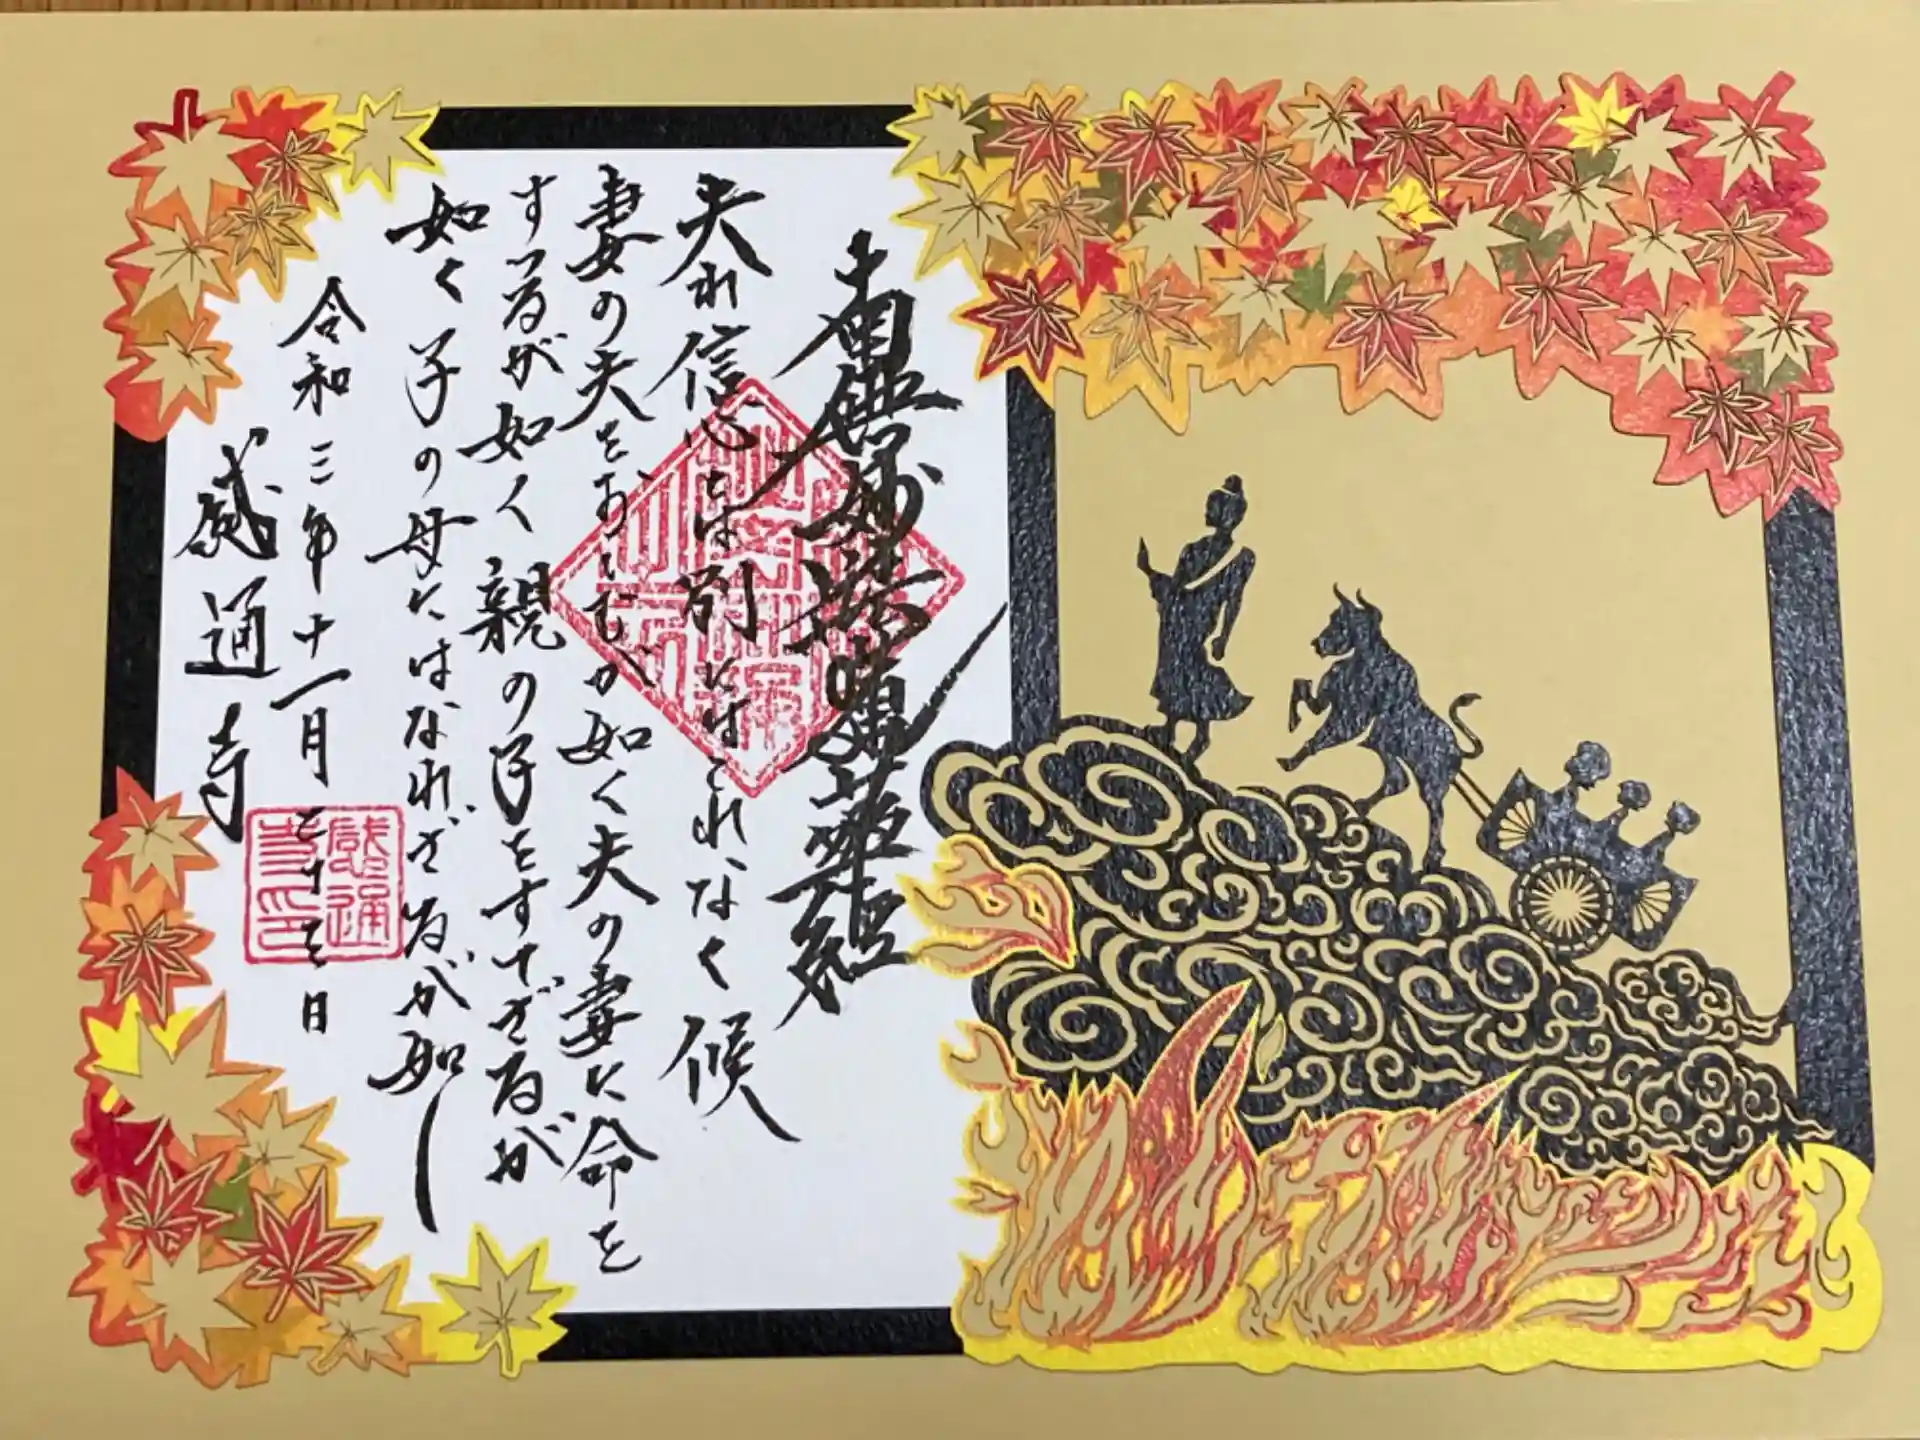 南無妙法蓮華経
夫れ信心とは別にはこれなく候
妻の夫をおしむが如く夫の妻に命を
すつるが如く親の子をすてざるが
如く子の母にはなれざるが如し
令和三年十一月二十三日
感通寺
感通寺印